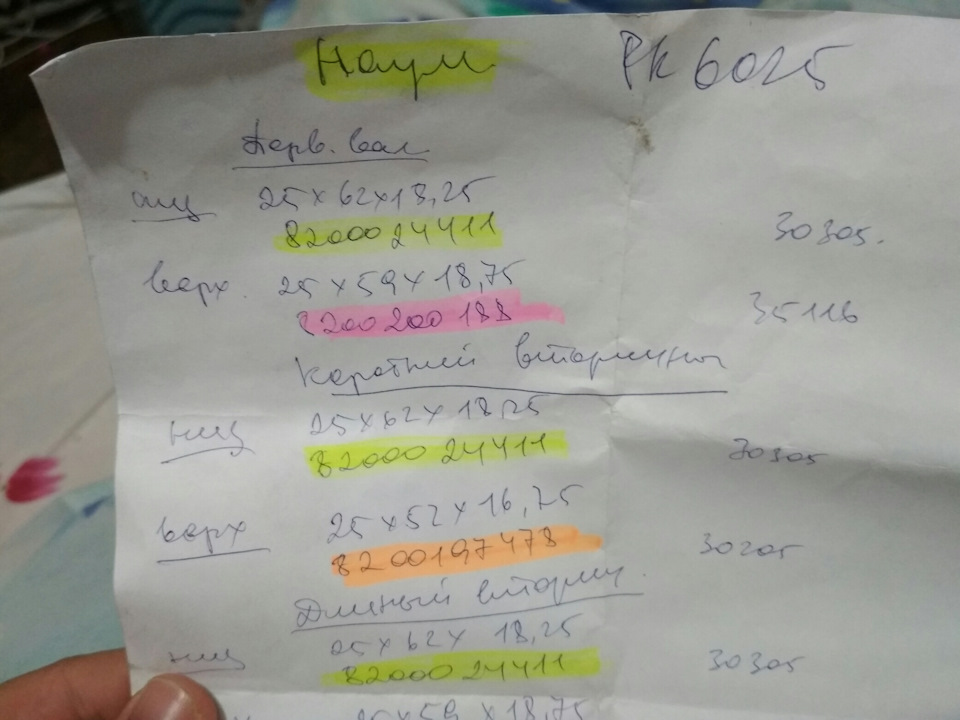 Наум РК6025
Перв. вал
ниц 25×62×18,25
8200024411 30305.
верх. 25×59×18,75
8200200188 35116
Короткий вторичны
ниц 25×62×18,25
8200024411 30305
верх 25×52×16,75
8200197478 30205
Длиный вторич.
ниц 25×62×18,25
8200024411 30305
25×59×18,75